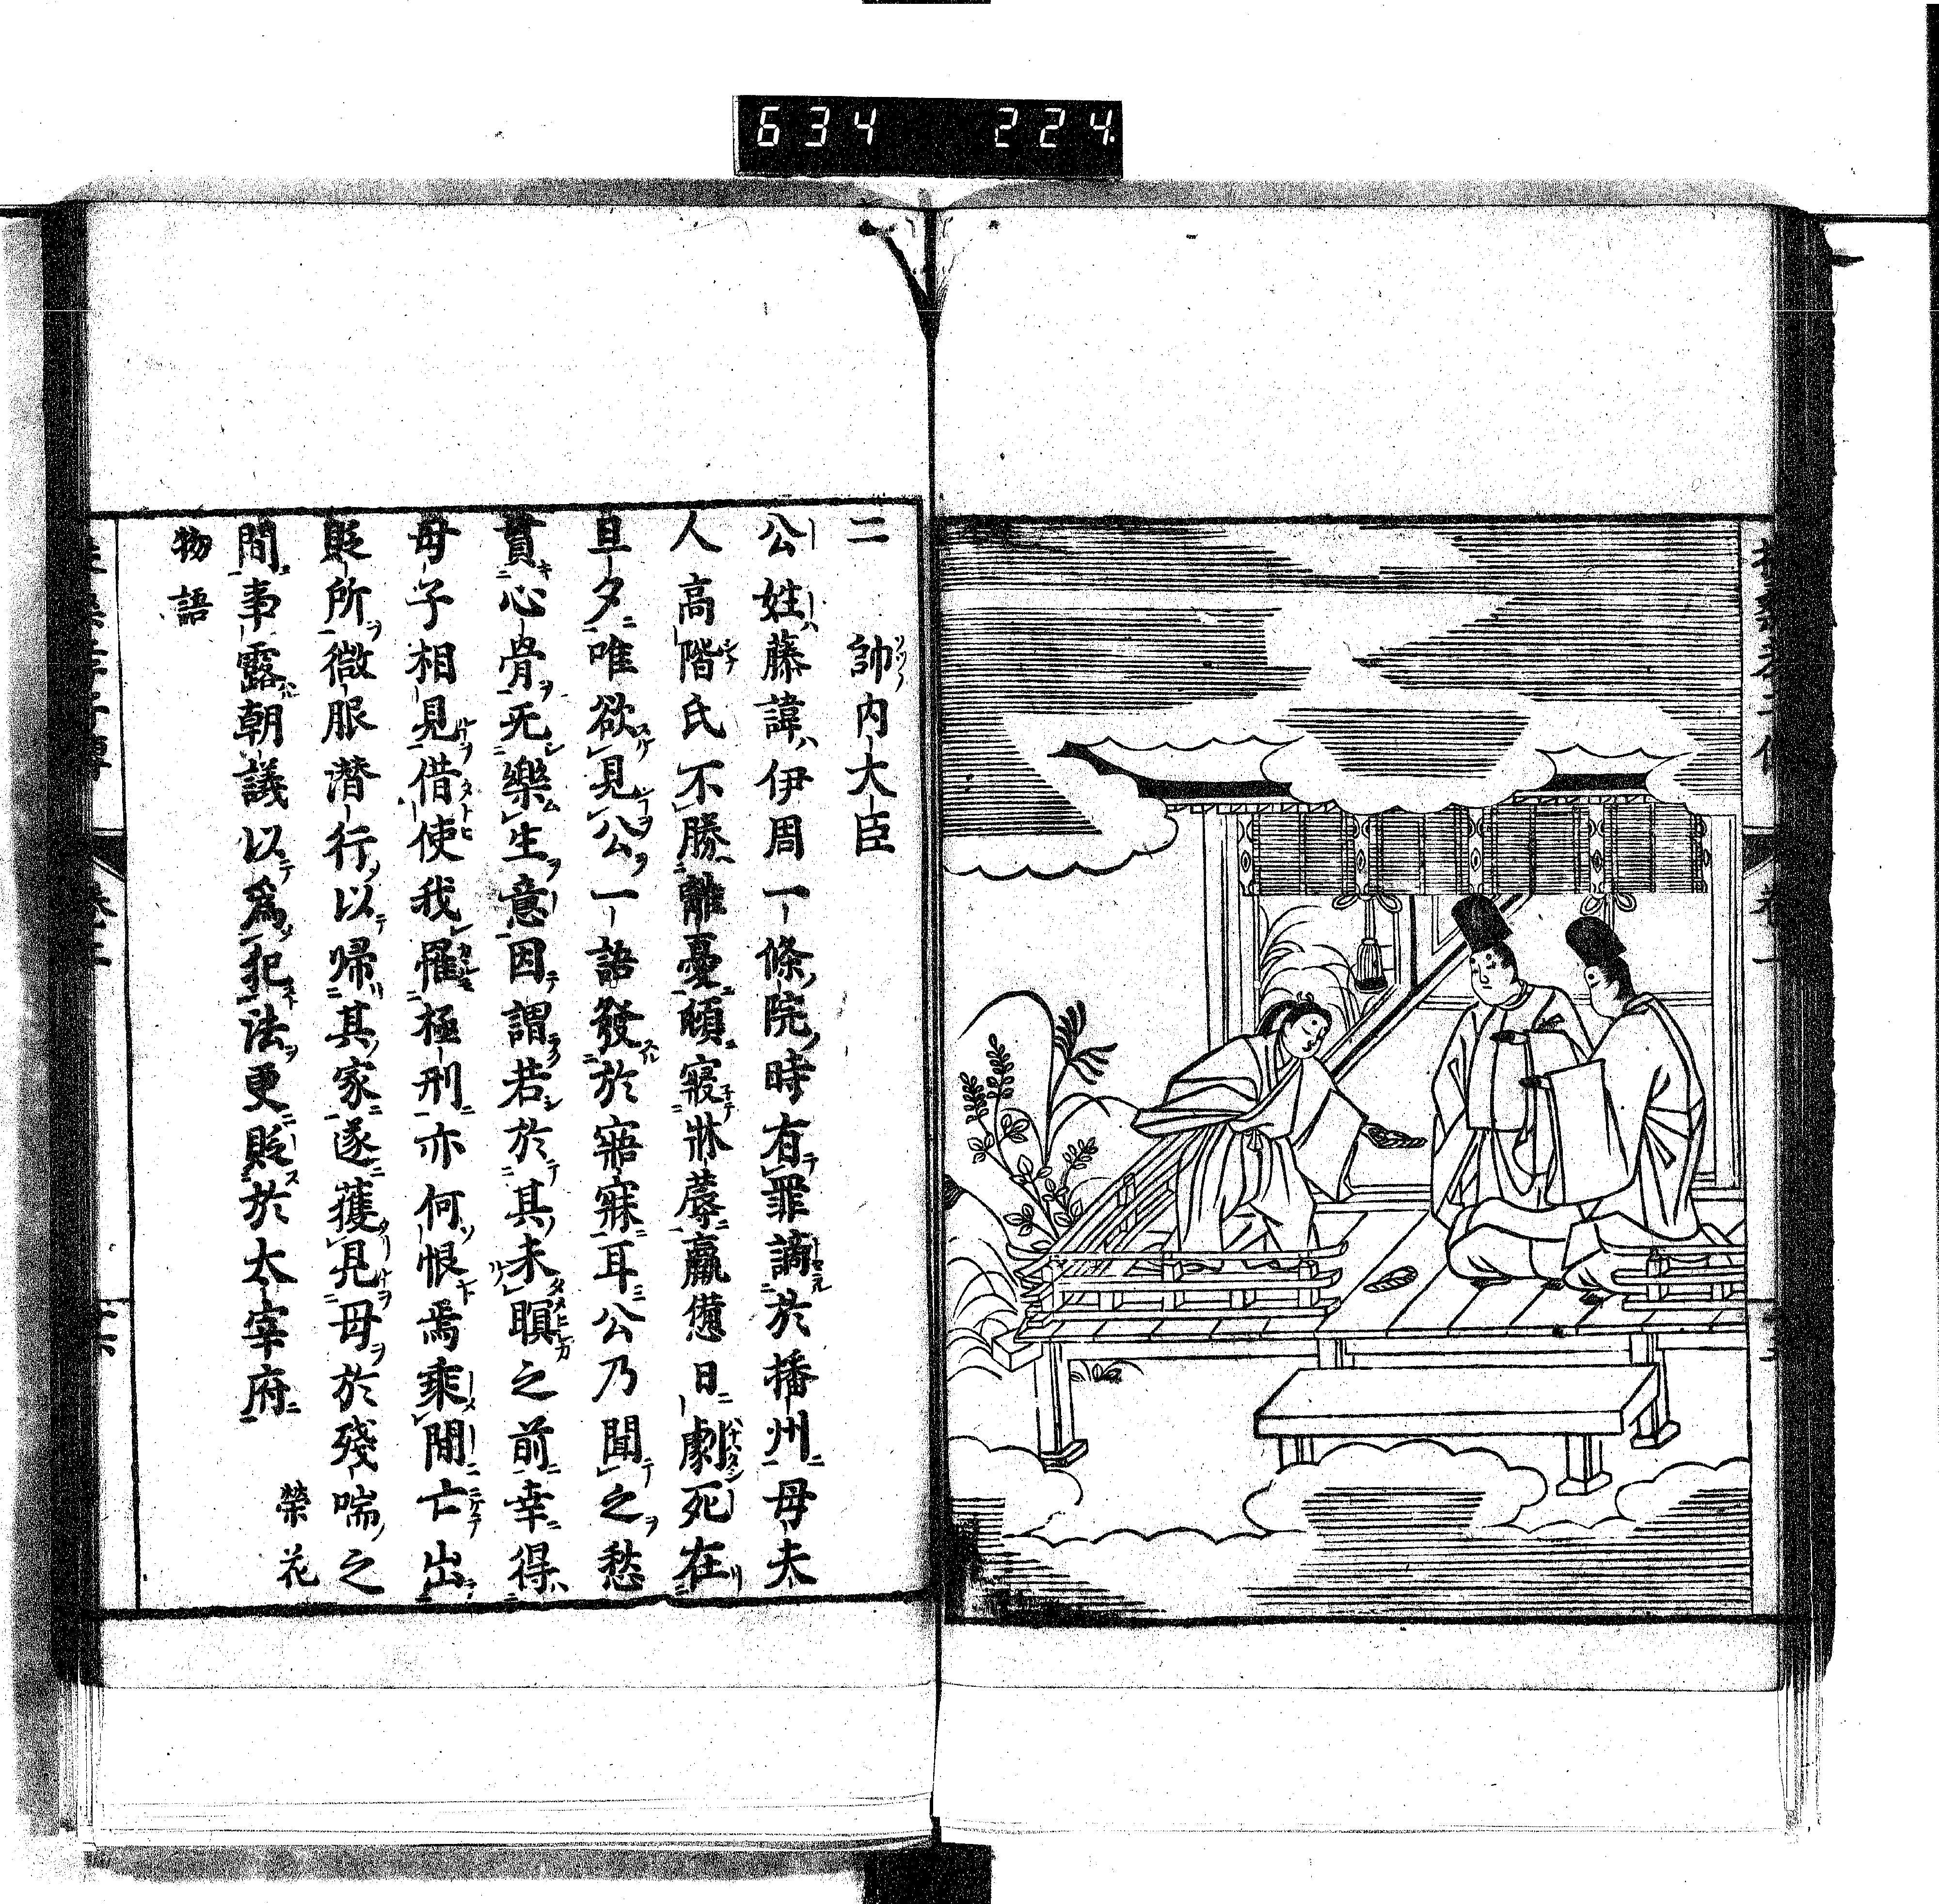 634 224
二 帥内大臣
公姓藤諱伊周一條院時有罪謫於播州母夫
人高階氏不勝離憂頓寢牀蓐羸憊日劇死在
旦夕唯欲見公一語發於寤寐耳公乃聞之愁
貫心骨无樂生意因謂若於其未瞑之前幸得
母子相見借使我罹極刑亦何恨焉乘間亡出
貶所微服潜行以歸其家遂獲見母於殘喘之
間事露朝議以爲犯法更貶於太宰府 榮花
物語